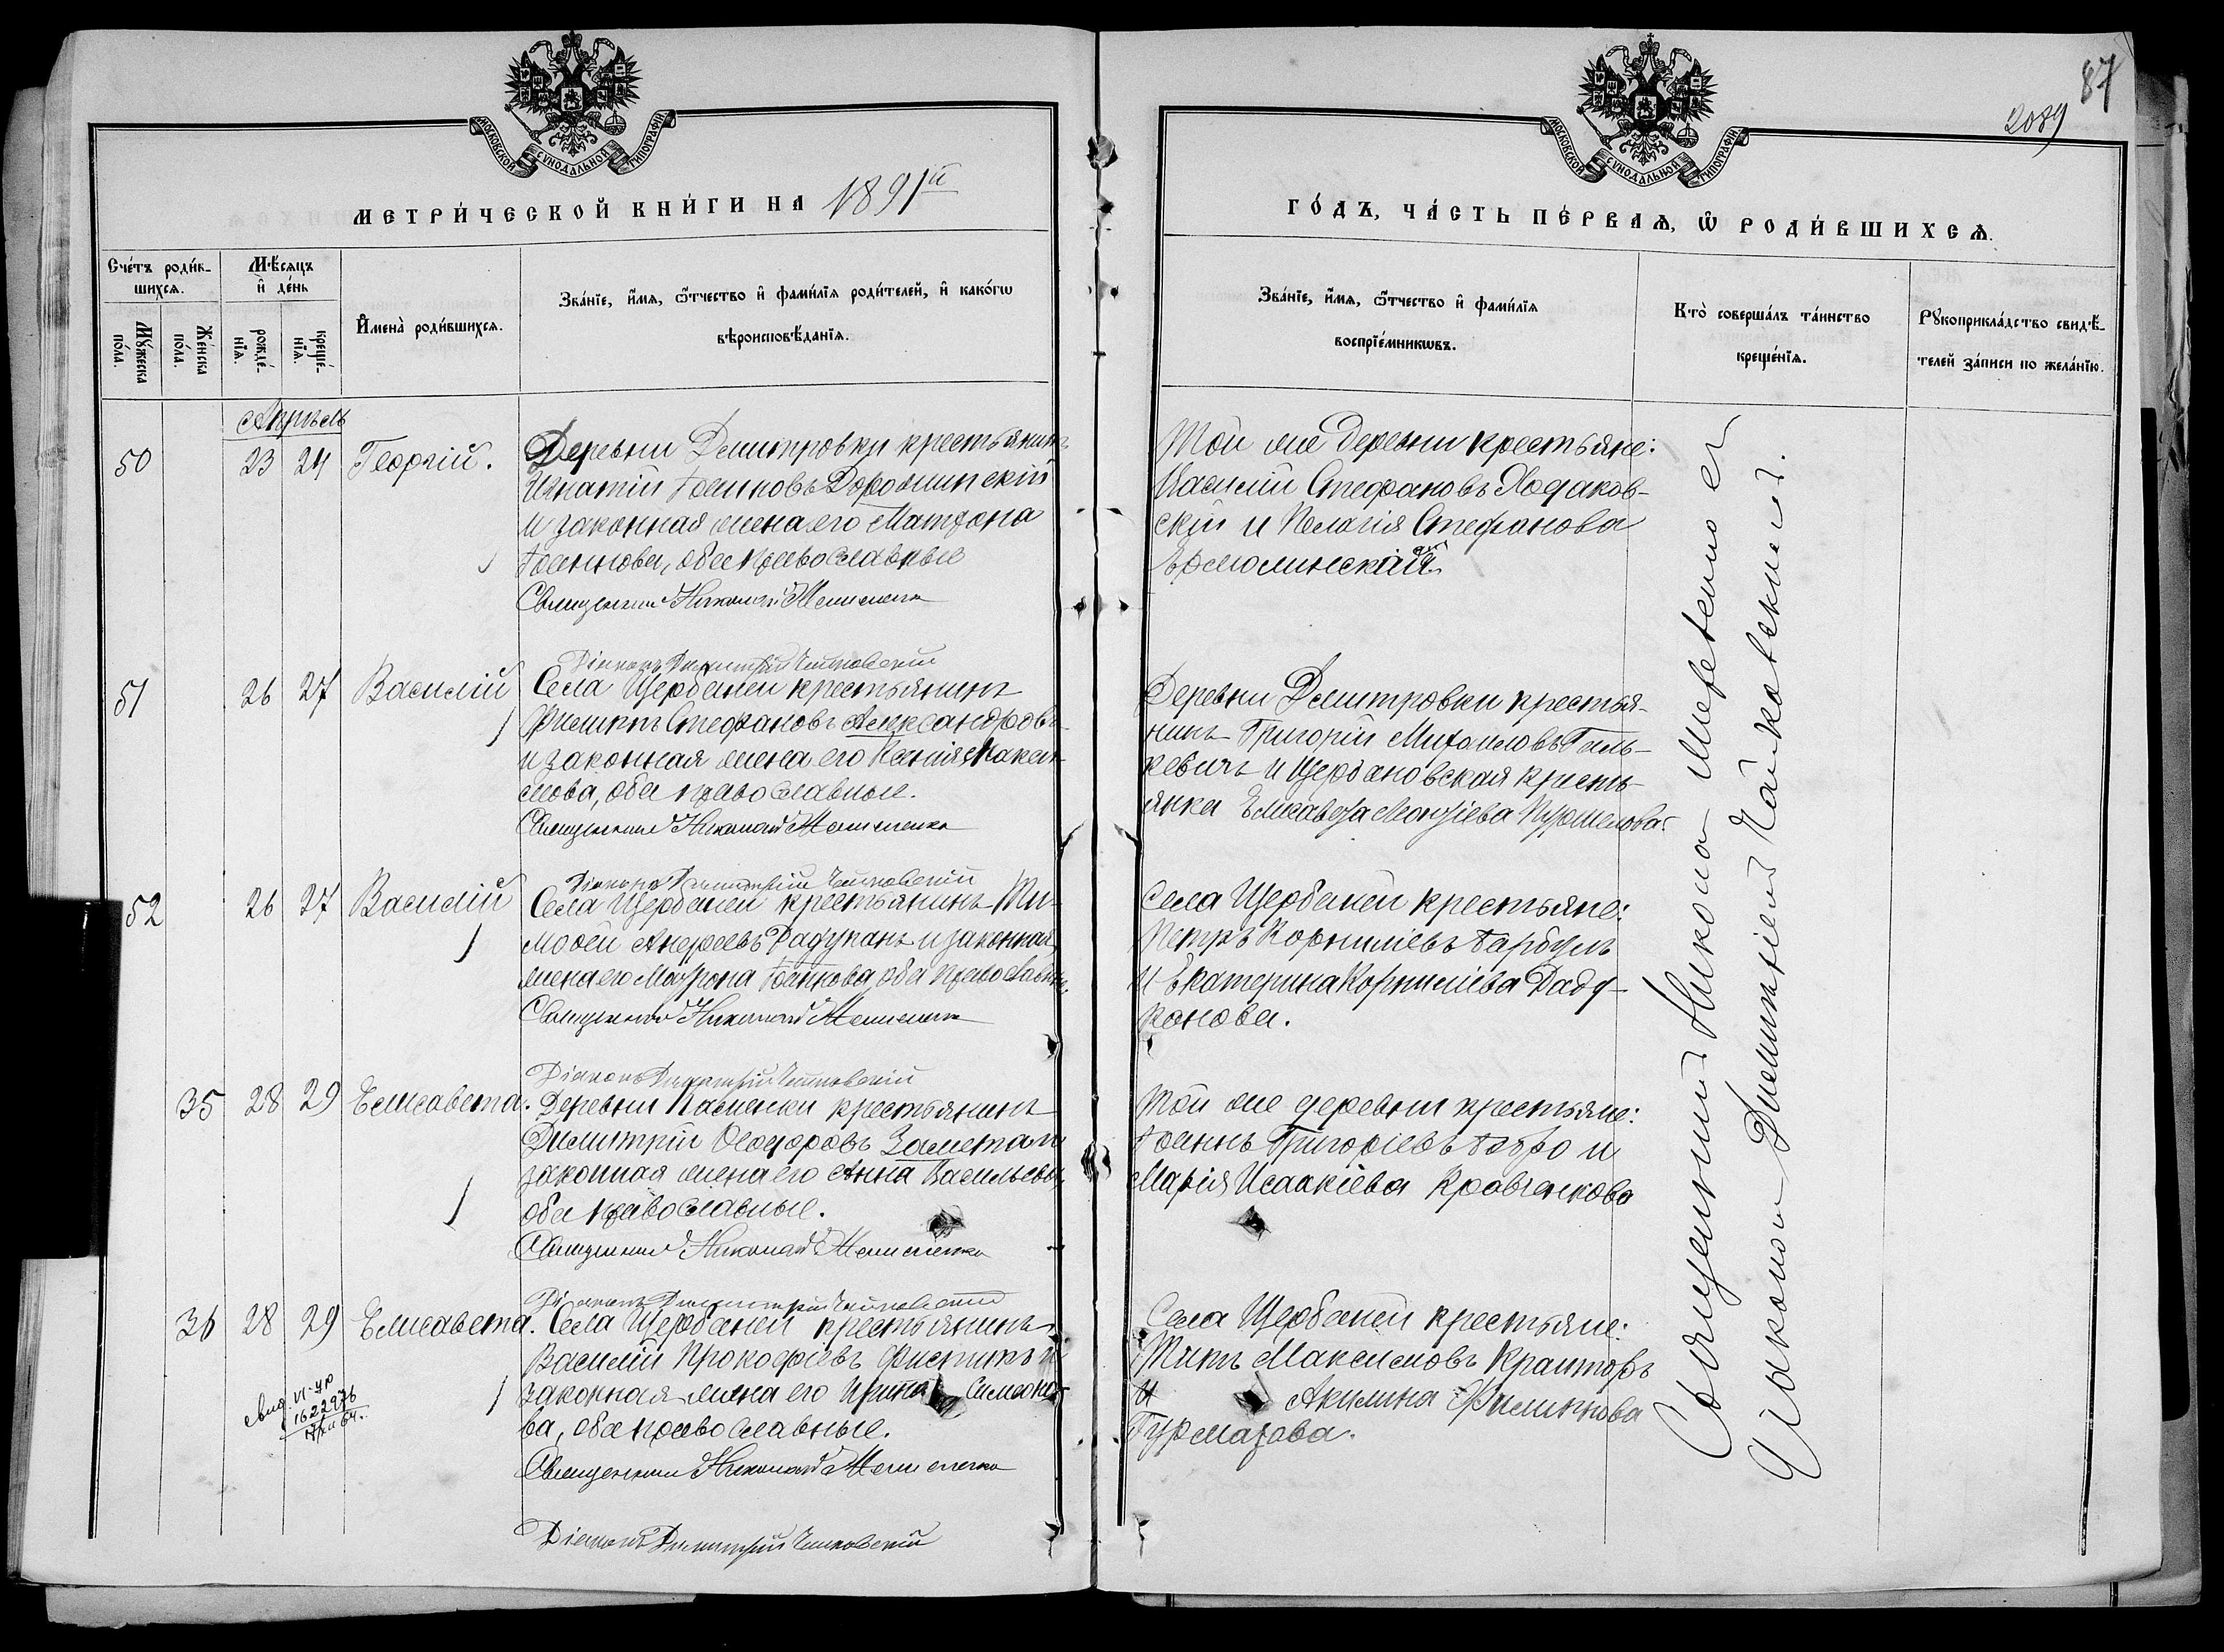 87
2089
МОСКОВСКОЙ СѴНОДАЛЬНОЙ ТИПОГРАФІИ
МОСКОВСКОЙ СѴНОДАЛЬНОЙ ТИПОГРАФІИ
МЕТРИ́ЧЕСКОЙ КНИ́ГИ НА 1891й
ГО́ДЪ, ЧА́СТЬ ПЕ́РВАѦ, Ѡ҆ РОДИ́ВШИХСѦ.
Сче́тъ роди́вшихсѧ.
Мꙋ́жеска по́ла.
Же́нска по́ла.
Мѣ́сѧцъ и҆ де́нь
рожде́нїѧ.
креще́нїѧ.
И҆мена̀ роди́вшихсѧ.
Зва́нїе, и҆́мѧ, ѻ҆́тчество и҆ фами́лїѧ роди́телей, и҆ како́гѡ
вѣроисповѣ́данїѧ.
Зва́нїе, и҆́мѧ, ѻ҆́тчество и҆ фами́лїѧ
воспрїе́мникѡвъ.
Кто̀ соверша́лъ та́инство
креще́нїѧ.
Рꙋкоприкла́дство свидѣ́-
телей за́писи по жела́нїю.
Апрѣль
50 23 24 Георгій.
Деревни Дмитровки крестьянинъ
Игнатій Іоанновъ Дорожинскій
и законная жена его Матрона
Іоаннова, оба православные
Священникъ Николай
Діаконъ Димитрій Чайковскій
Той же деревни крестьяне:
Василій Стефановъ Ходаков-
скій и Пелагія Стефанова
51 26 27 Василій
Села Щербаней крестьянинъ
Филиппъ Стефановъ Александровъ
и законная жена его Ксенія Макси-
мова, оба православные.
Священникъ Николай
Діаконъ Димитрій Чайковскій
Деревни Дмитровки крестья-
нинъ Григорій Михаиловъ Галь-
кевичъ и Щербановская кресть-
янка Елисавета Георгіева
52 26 27 Василій
Села Щербаней крестьянинъ Ти-
мофей Андреевъ Дадуканъ и законная
жена его Матрона Іоаннова, оба православные.
Священникъ Николай
Діаконъ Димитрій Чайковскій
Села Щербаней крестьяне:
Петръ Корниліевъ
и Екатерина Корниліева Даду-
канова.
35 28 29 Елисавета.
Деревни Касьянки крестьянинъ
Димитрій Ѳеодоровъ Замета и
законная жена его Анна Васильева,
оба православные.
Священникъ Николай
Діаконъ Димитрій Чайковскій
Той же деревни крестьяне:
Іоаннъ Григоріевъ и
Марія Исаакіева Кравченкова
36 28 29 Елисавета.
Села Щербаней крестьянинъ
Василій Прокофіевъ и
законная жена его Ирина Симеоно-
ва, оба православные.
Священникъ Николай
Діаконъ Димитрій Чайковскій
Села Щербаней крестьяне:
Титъ Максимовъ
и Акилина Филиппова
Гурмазова.
Свид. VI-УР
162297б
Священникъ Николай съ
Діакономъ Димитріемъ Чайковскимъ.